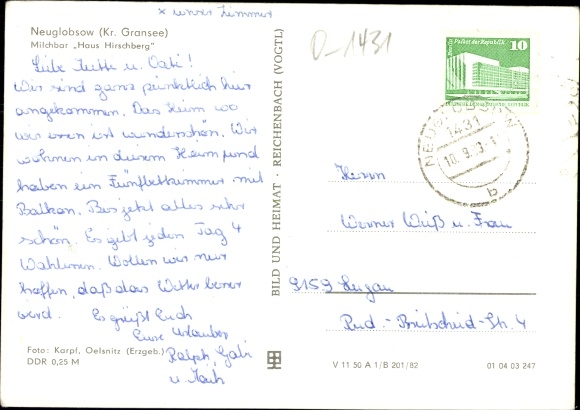 x unser Zimmer
Neuglobsow (Kr. Gransee)
Milchbar "Haus Hirschberg"
Liebe Mutti u. Vati!
Wir sind ganz pünktlich hier
angekommen. Das Heim wo
wir essen ist wunderschön. Wir
wohnen in diesem Heim und
haben ein Fünfbettzimmer mit
Balkon. Bis jetzt alles sehr
schön. Es gibt jeden Tag 4
Wahlessen. Wollen wir nur
hoffen, daß das Wetter besser
wird. Es grüßt Euch
Eure Urlauber
Ralph, Gabi
u. Maik
Foto: Karpf, Oelsnitz (Erzgeb.)
DDR 0,25 M
BILD UND HEIMAT · REICHENBACH (VOGTL)
D-1431
Berlin, Palast der Republik
10
NEUGLOBSOW
1431
10.9.
b
Herrn
Werner Weiß u. Frau
9159 Lugau
Rud.-Breitscheid-Str. 4
V 11 50 A 1/B 201/82
01 04 03 247